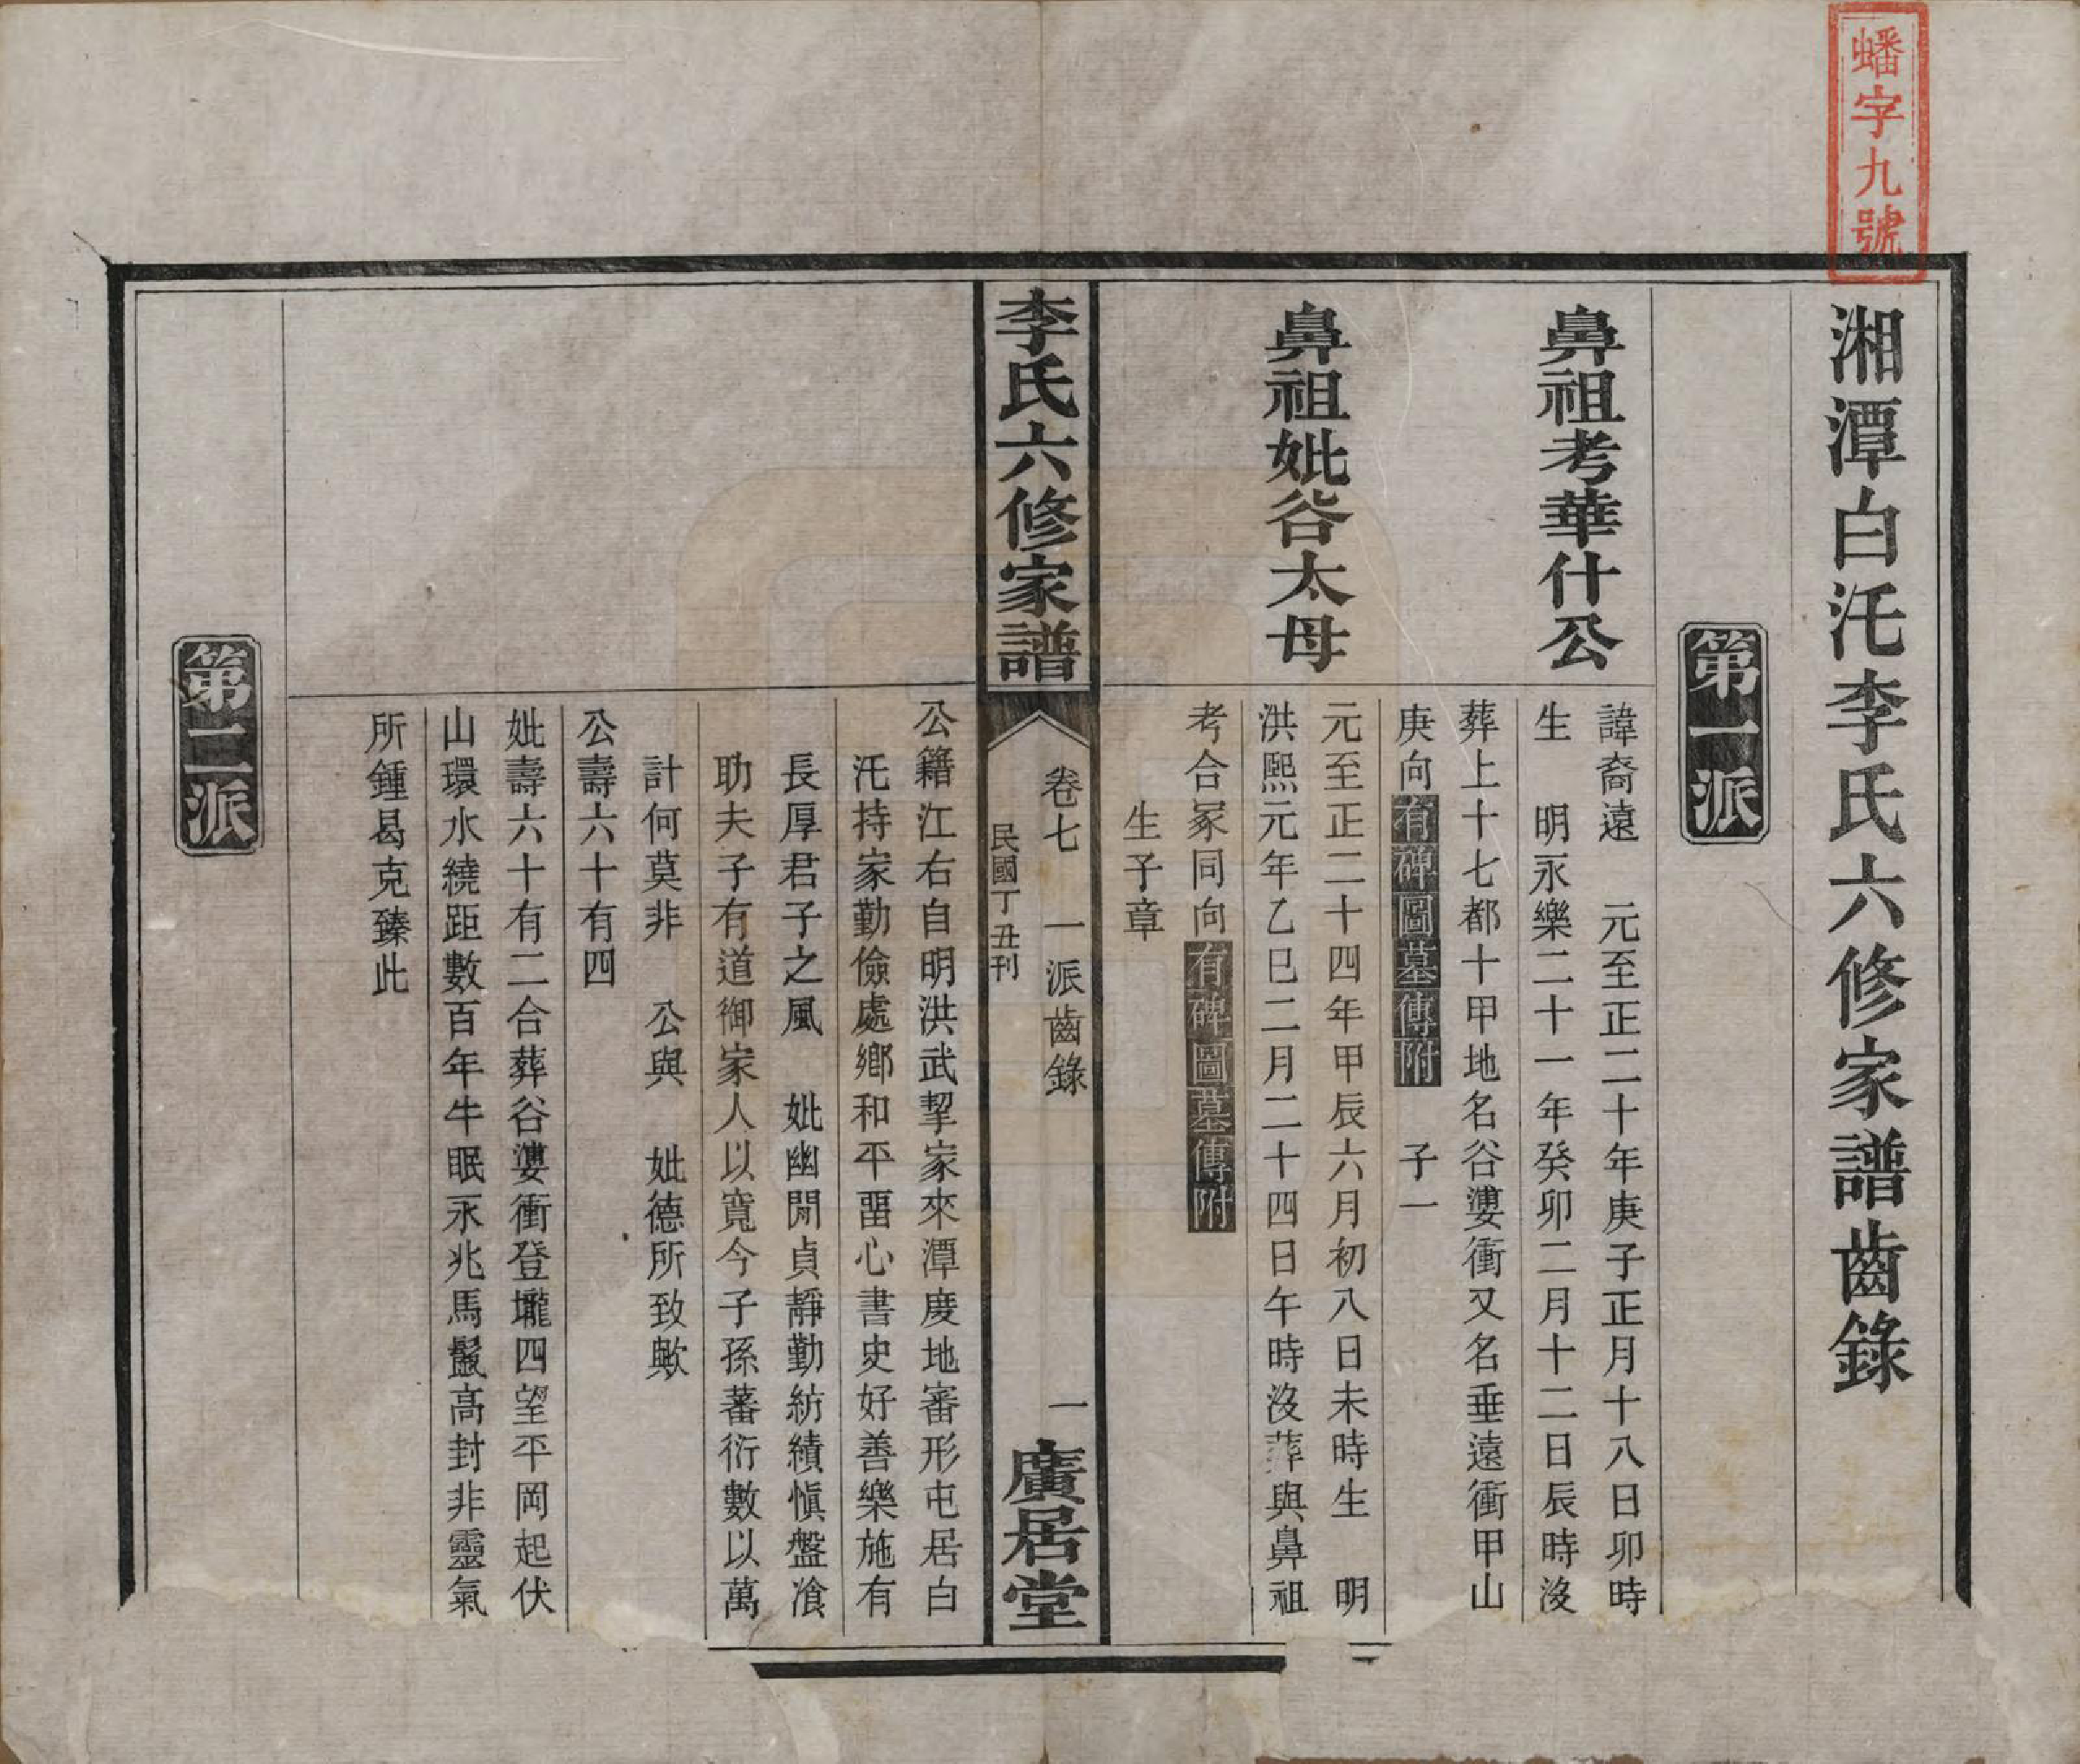 蟠字九號
湘潭白汑李氏六修家譜齒錄
第一派
鼻祖考華什公
諱裔遠　元至正二十年庚子正月十八日卯時
生　明永樂二十一年癸卯二月十二日辰時沒
葬上十七都十甲地名谷漊衝又名垂遠衝甲山
庚向有碑圖墓傳附　子一
鼻祖妣谷太母
元至正二十四年甲辰六月初八日未時生　明
洪熙元年乙巳二月二十四日午時沒葬與鼻祖
考合冢同向有碑圖墓傳附
生子章
李氏六修家譜
卷七　一派齒錄　一
民國丁丑刊
廣居堂
公籍江右自明洪武挈家來潭度地審形屯居白
汑持家勤儉處鄉和平畱心書史好善樂施有
長厚君子之風　妣幽閒貞靜勤紡績愼盤飡
助夫子有道御家人以寬今子孫蕃衍數以萬
計何莫非　公與　妣德所致歟
公壽六十有四
妣壽六十有二合葬谷漊衝登壠四望平岡起伏
山環水繞距數百年牛眠永兆馬鬣高封非靈氣
所鍾曷克臻此
第二派